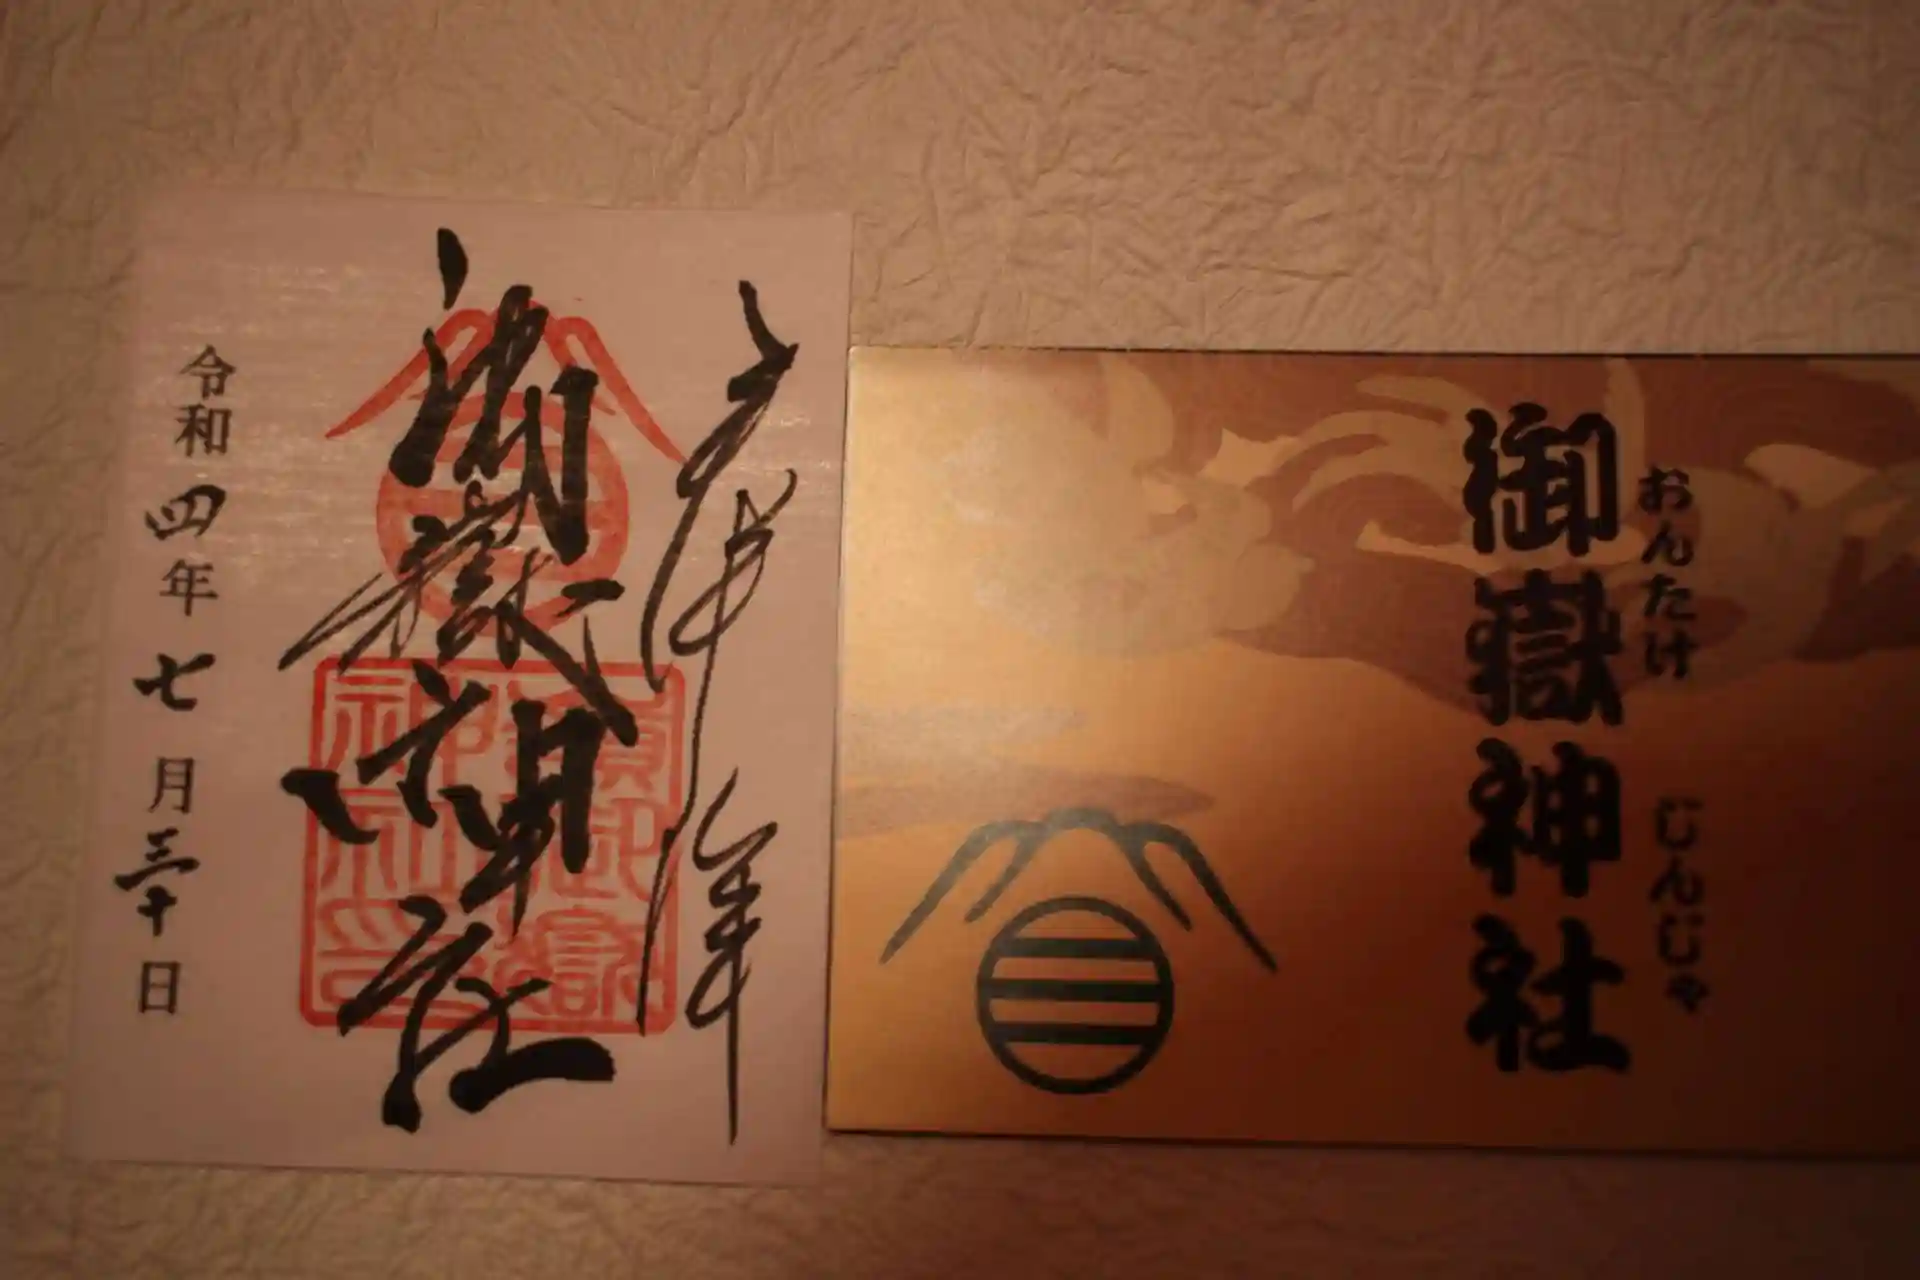 奉拝
御嶽神社
令和四年七月三十日
御嶽神社
おんたけ じんじゃ